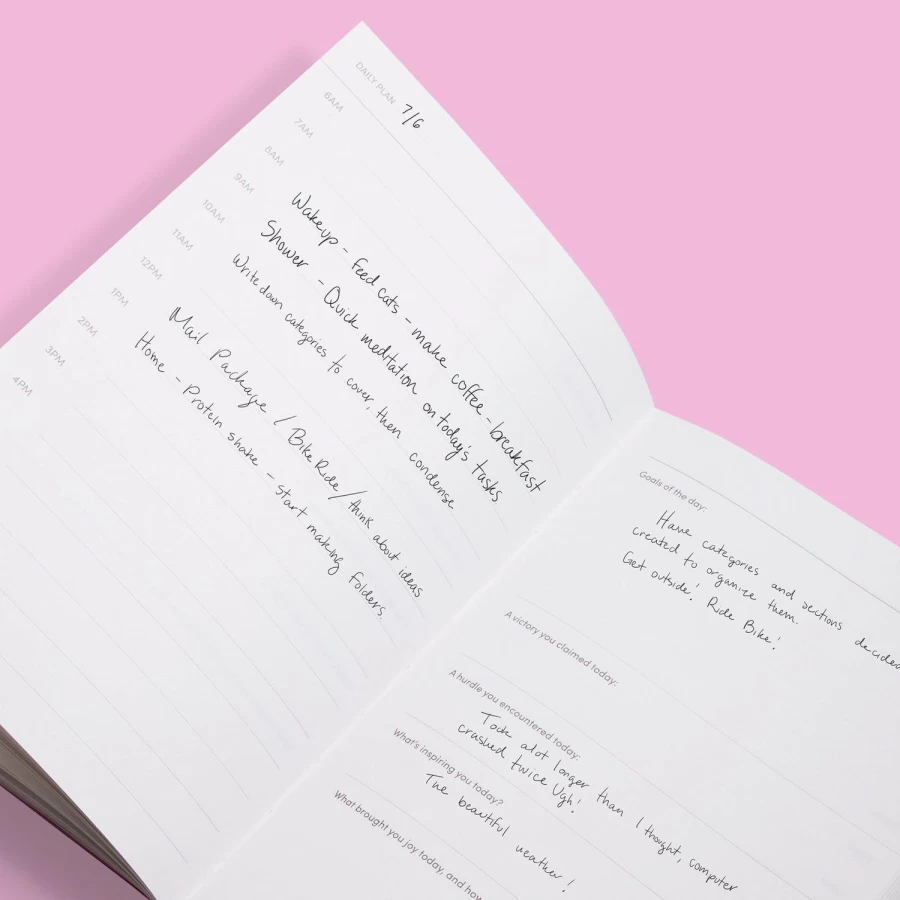 DAILY PLAN 7/6
6AM
7AM
8AM Wakeup - feed cats - make coffee - breakfast
9AM Shower - Quick meditation on today's tasks
10AM Write down categories to cover, then condense
11AM
12PM Mail Package / Bike Ride / think about ideas
1PM Home - Protein shake - start making folders.
2PM
3PM
4PM
Goals of the day:
Have categories and sections decided
created to organize them.
Get outside! Ride Bike!
A victory you claimed today:
A hurdle you encountered today:
Took alot longer than I thought, computer
crashed twice Ugh!
What's inspiring you today?
The beautiful weather!
What brought you joy today, and how